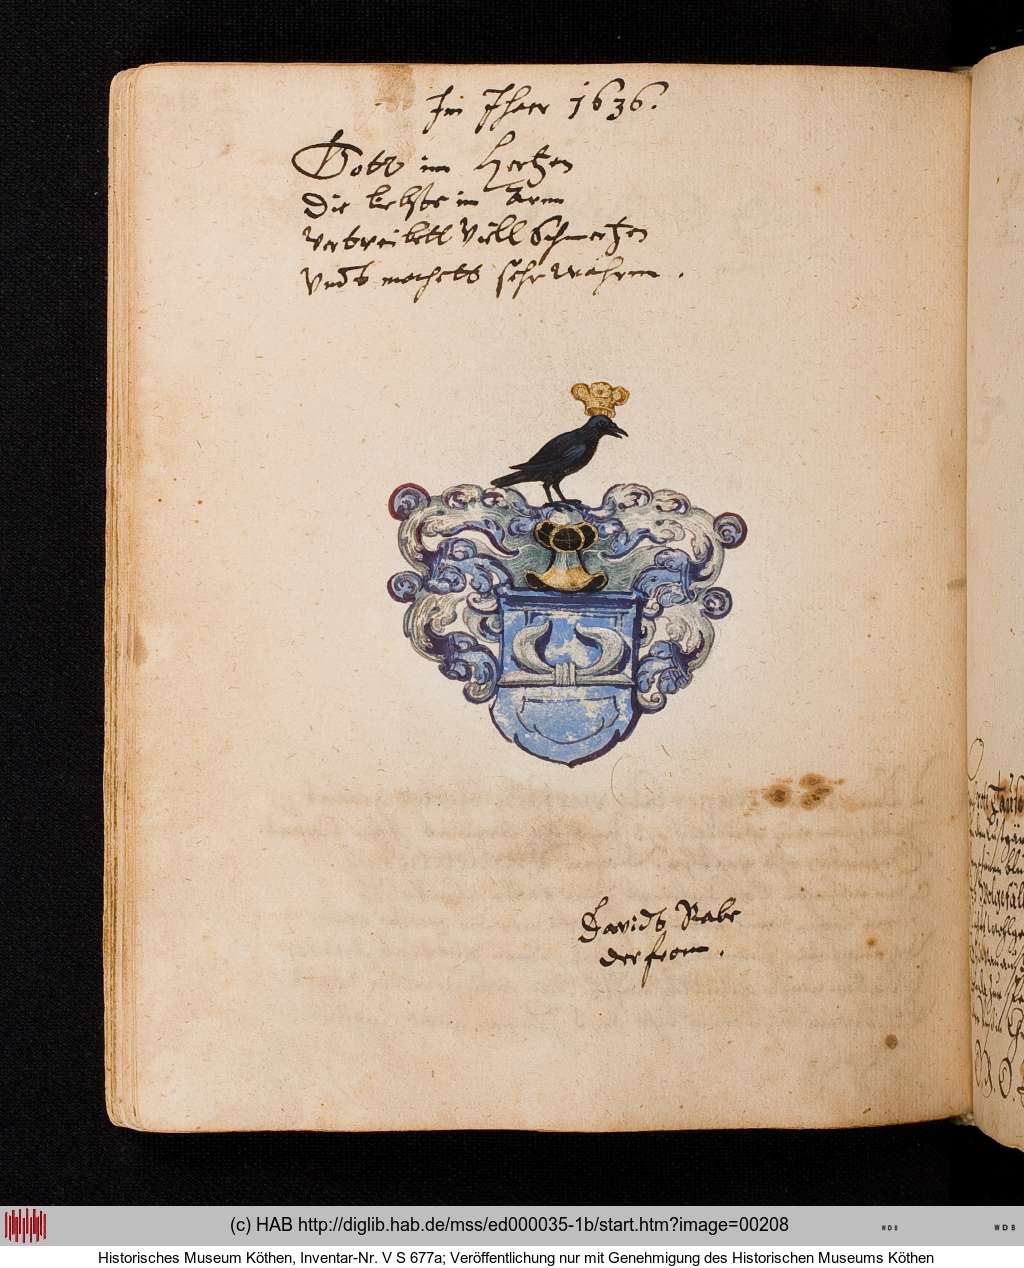 Im Jhaer 1636.
Gott im Hertzen
Die liebste im Arm
Vertreibett Viell Schmertzen
Vndt machett sehr wahrm.
Davidt Rabe
der from.
(c) HAB http://diglib.hab.de/mss/ed000035-1b/start.htm?image=00208
WDB
WDB
Historisches Museum Köthen, Inventar-Nr. V S 677a; Veröffentlichung nur mit Genehmigung des Historischen Museums Köthen